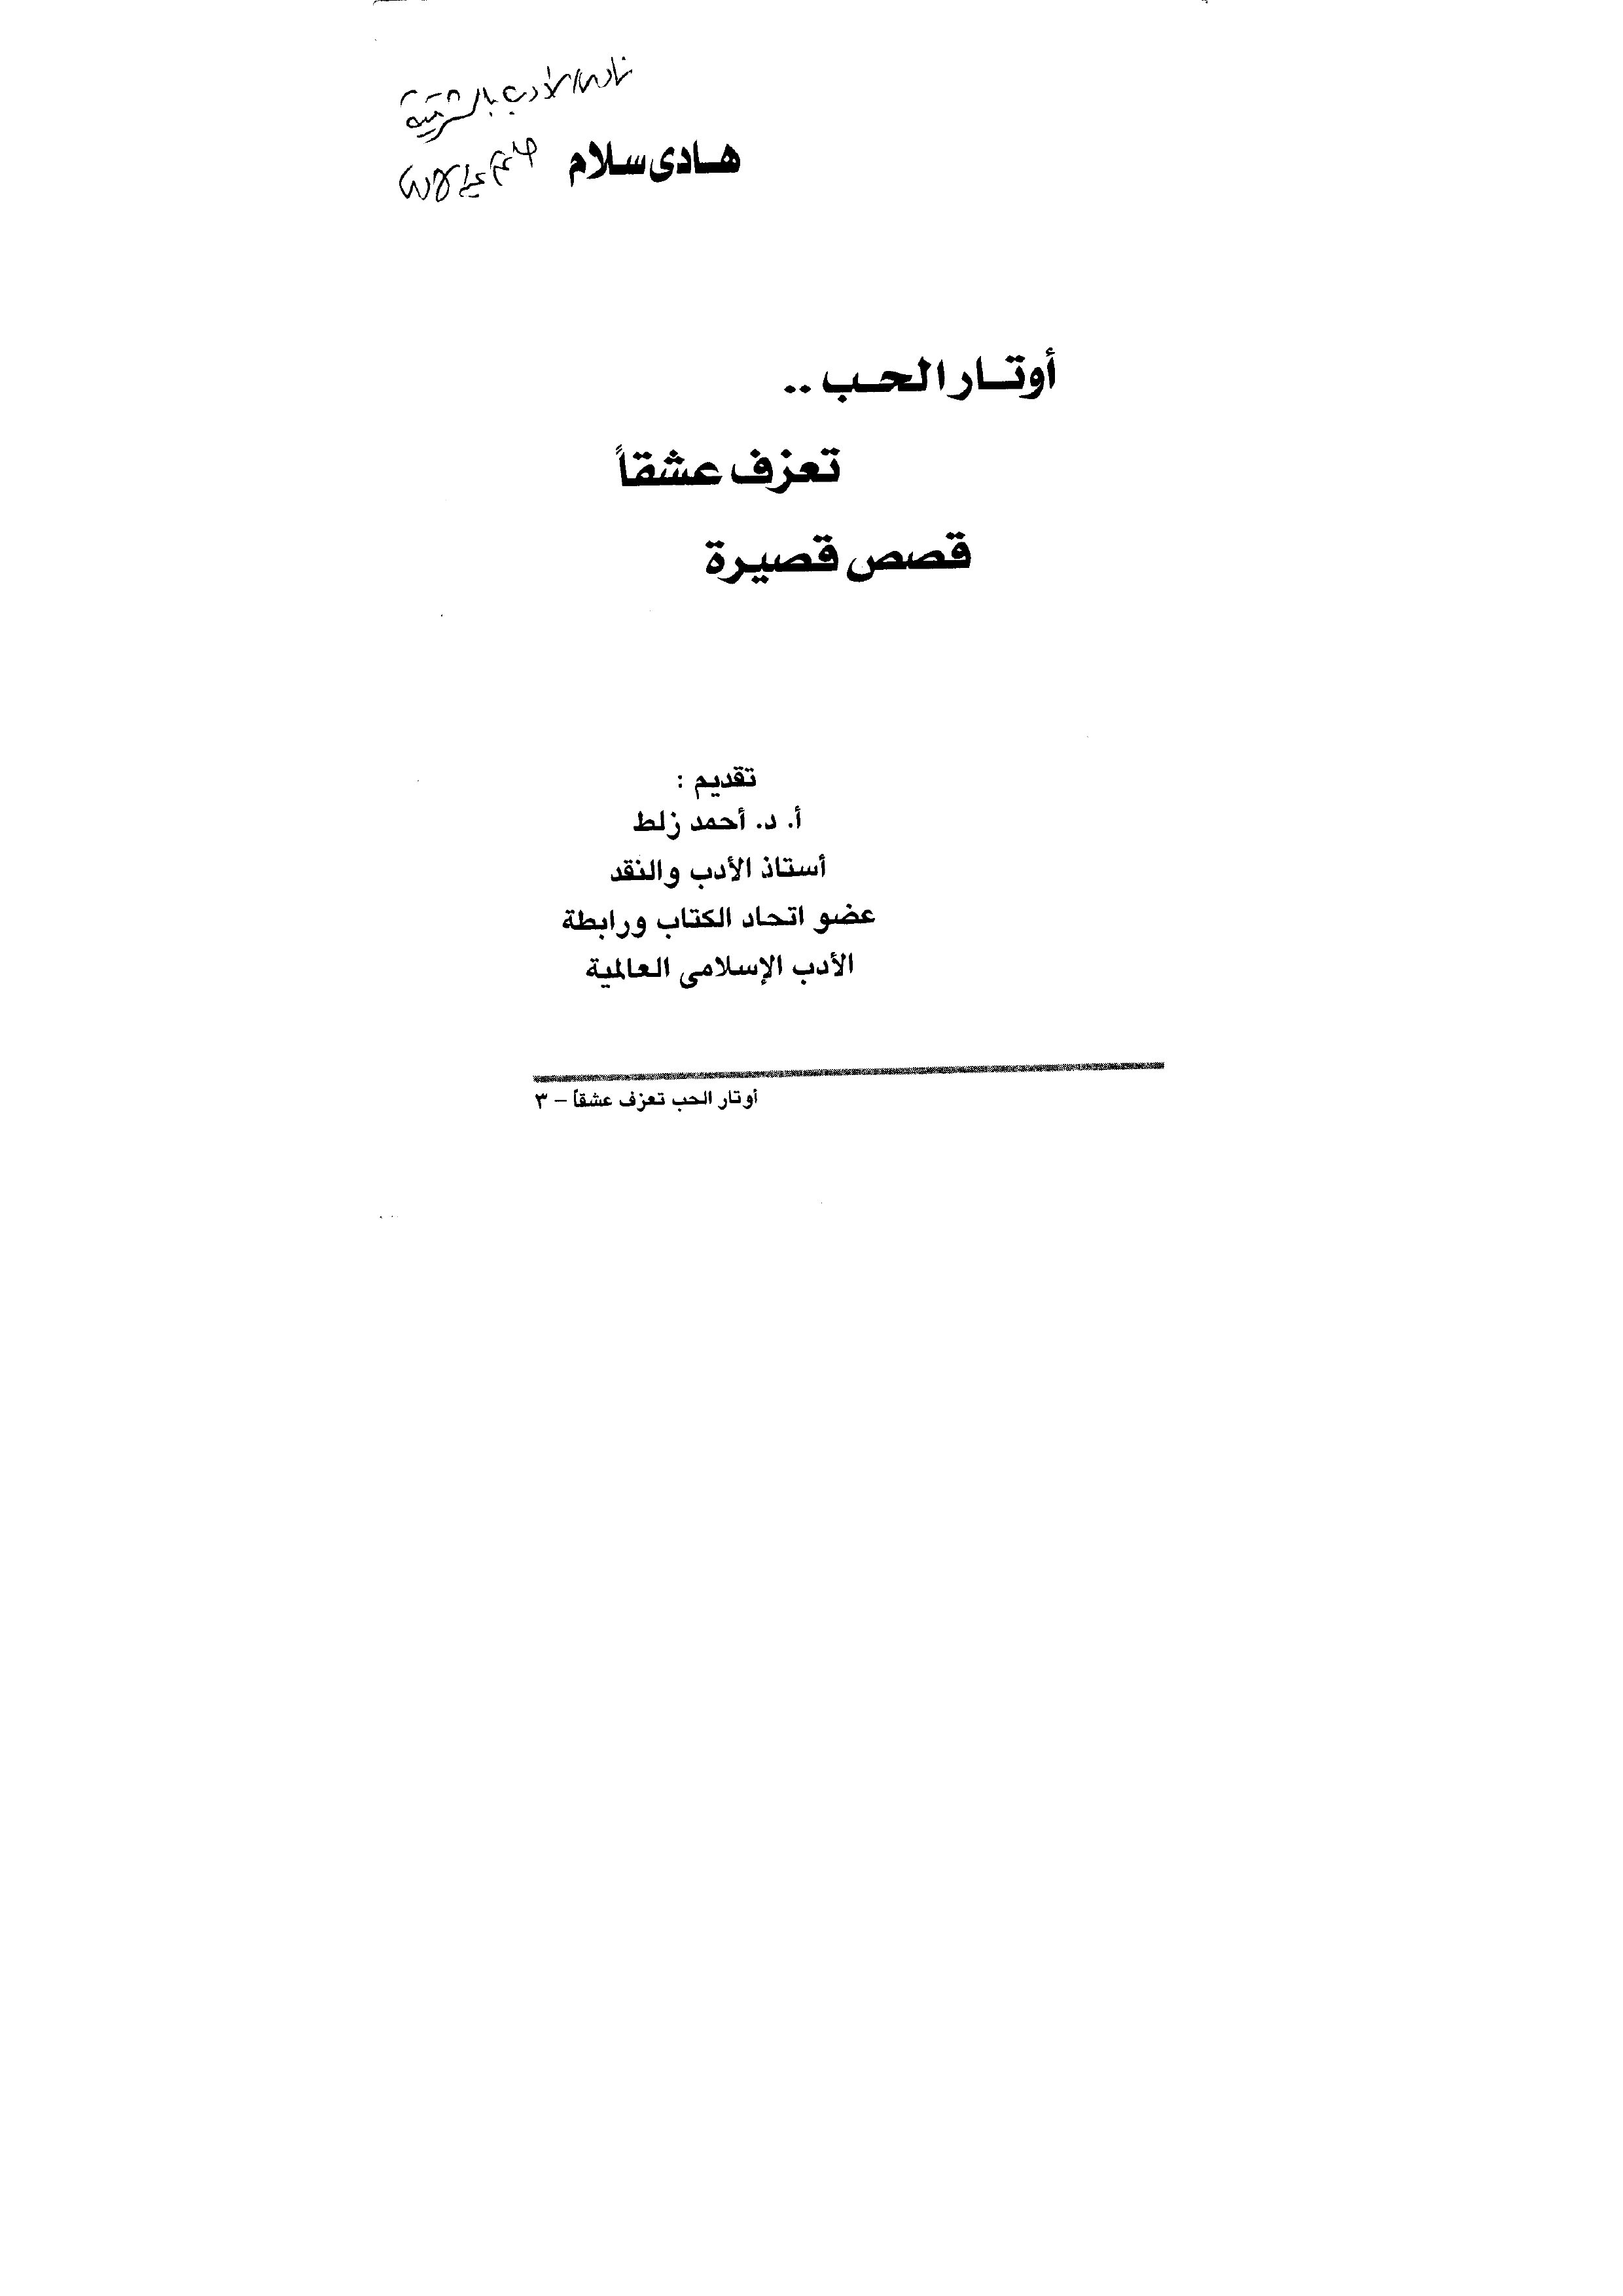 نادى الأدب بالشرقية
هادى سلام
أوتار الحب ..
تعزف عشقاً
قصص قصيرة
تقديم :
أ. د. أحمد زلط
أستاذ الأدب والنقد
عضو اتحاد الكتاب ورابطة
الأدب الإسلامى العالمية
أوتار الحب تعزف عشقاً – ٣